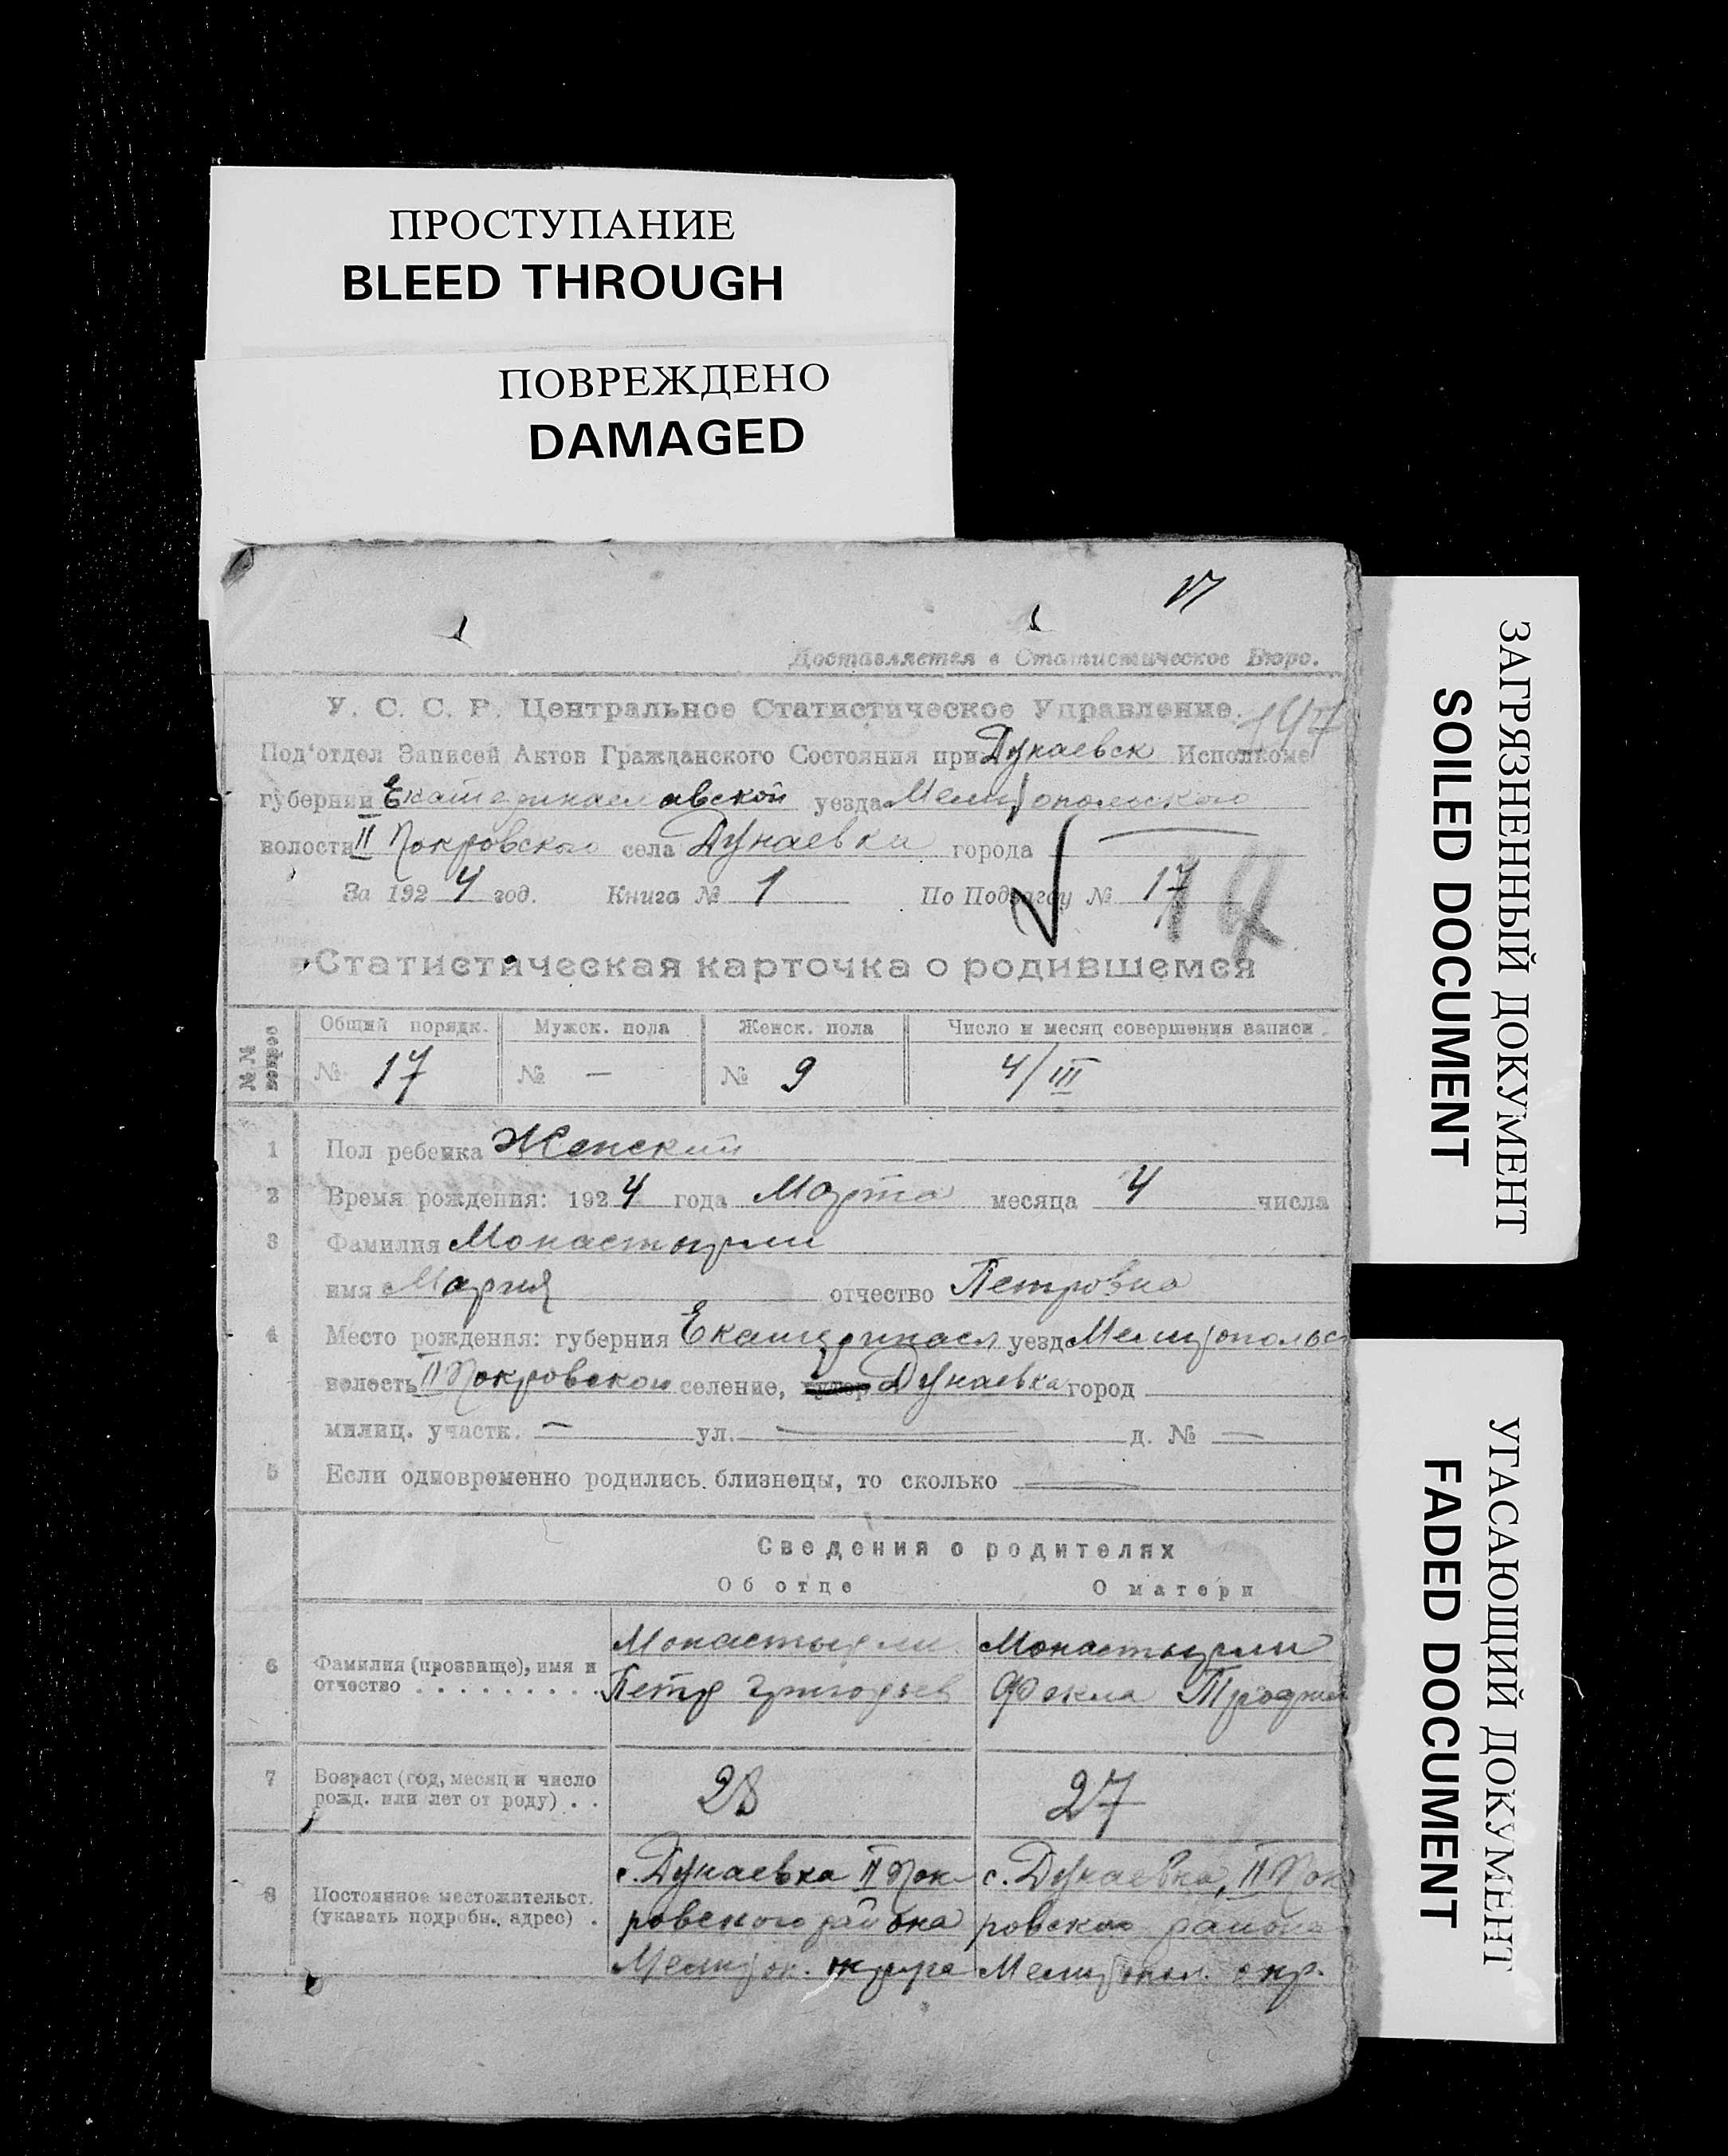 ПРОСТУПАНИЕ
BLEED THROUGH
ПОВРЕЖДЕНО
DAMAGED
17
Доставляется в Статистическое Бюро.
У. С. С. Р. Центральное Статистическое Управление.
Под'отдел Записей Актов Гражданского Состояния при Дунаевск Исполкоме
губернии Екатеринославской уезда Мелитопольского
волости II Покровского села Дунаевки города —
За 1924 год. Книга № 1 По Подвагсу № 17
17
Статистическая карточка о родившемся
Общий порядк. Мужск. пола Женск. пола Число и месяц совершения записи.
№ 17 № — № 9 4/III
1 Пол ребенка Женский
2 Время рождения: 1924 года Марта месяца 4 числа
3 Фамилия Монастырли
имя Мария отчество Петровна
4 Место рождения: губерния Екатериносл уезд Мелитопольс
волость II Покровской селение, хутор Дунаевка город
милиц. участк. — ул. — д. № —
5 Если одновременно родились близнецы, то сколько —
Сведения о родителях
Об отце О матери
6 Фамилия (прозвище), имя и отчество . . . . . . . . .
Монастырли
Петр Григорьев
Монастырли
Фекла
7 Возраст (год, месяц и число рожд. или лет от роду) . .
28 27
8 Постоянное местожительст. (указать подробн. адрес) .
с. Дунаевка II Пок-
ровского района
Мелитоп. округа
с. Дунаевка, II Пок
ровского района
Мелитопол. окр.
ЗАГРЯЗНЕННЫЙ ДОКУМЕНТ
SOILED DOCUMENT
УГАСАЮЩИЙ ДОКУМЕНТ
FADED DOCUMENT